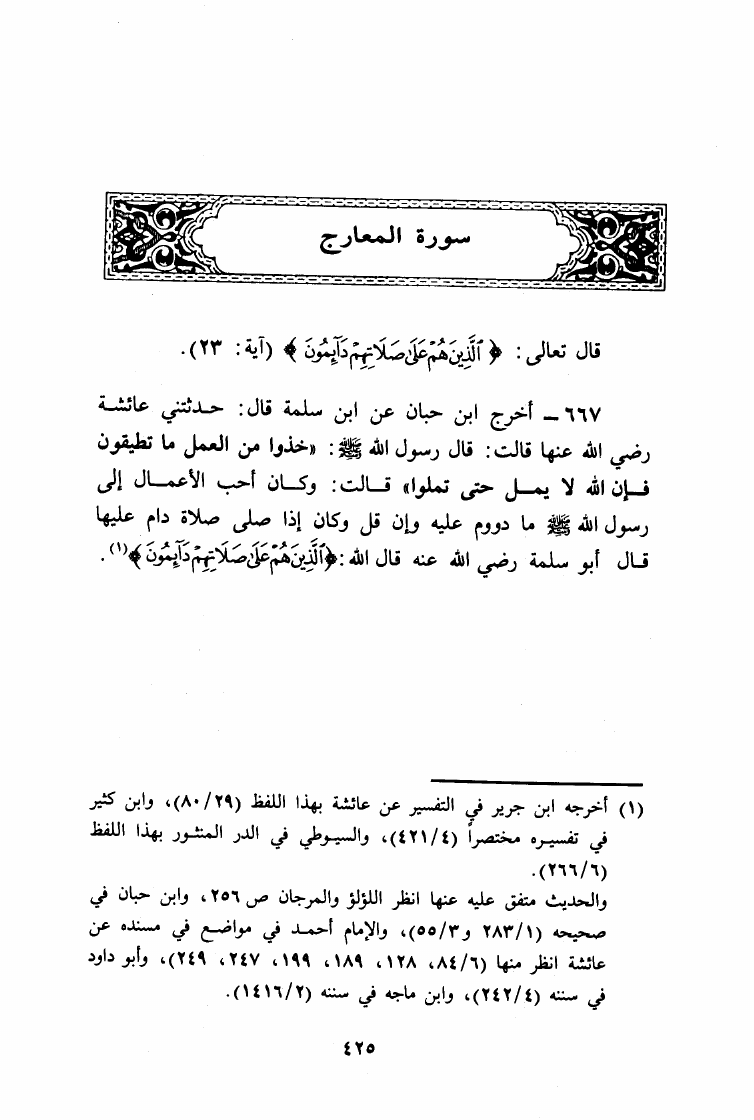 سورة المعارج
قال تعالى : ﴿ ٱلَّذِينَ هُمْ عَلَىٰ صَلَاتِهِمْ دَآئِمُونَ ﴾ (آية : ٢٣).
٦٦٧ ـ أخرج ابن حبان عن ابن سلمة قال: حـدثتني عائشـة
رضي الله عنها قالت: قال رسول الله ﷺ: «خذوا من العمل ما تطيقون
فـإن الله لا يمـل حتى تملوا» قـالت: وكـان أحب الأعمـال إلى
رسول الله ﷺ ما دووم عليه وإن قل وكان إذا صلى صلاة دام عليها
قـال أبو سلمة رضي الله عنه قال الله :﴿ٱلَّذِينَ هُمْ عَلَىٰ صَلَاتِهِمْ دَآئِمُونَ﴾(١).
(١) أخرجه ابن جرير في التفسير عن عائشة بهذا اللفظ (٨٠/٢٩)، وابن كثير
في تفسيـره مختصراً (٤٢١/٤)، والسيـوطي في الدر المنثـور بهذا اللفظ
(٢٦٦/٦).
والحديث متفق عليه عنها انظر اللؤلؤ والمرجان ص ٢٥٦، وابن حبان في
صحيحه (٢٨٣/١ و ٥٥/٣)، والإمام أحمـد في مواضـع في مسنده عن
عائشة انظر منها (٨٤/٦، ١٢٨، ١٨٩، ١٩٩، ٢٤٧، ٢٤٩)، وأبو داود
في سننه (٢٤٢/٤)، وابن ماجه في سننه (١٤١٦/٢).
٤٢٥